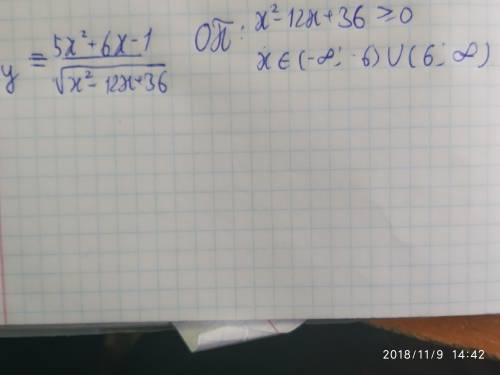 y = 5x²+6x-1 / √x²-12x+36
ОП: x²-12x+36 ≥ 0
x ∈ (-∞; 6) ∪ (6; ∞)
2018/11/9 14:42